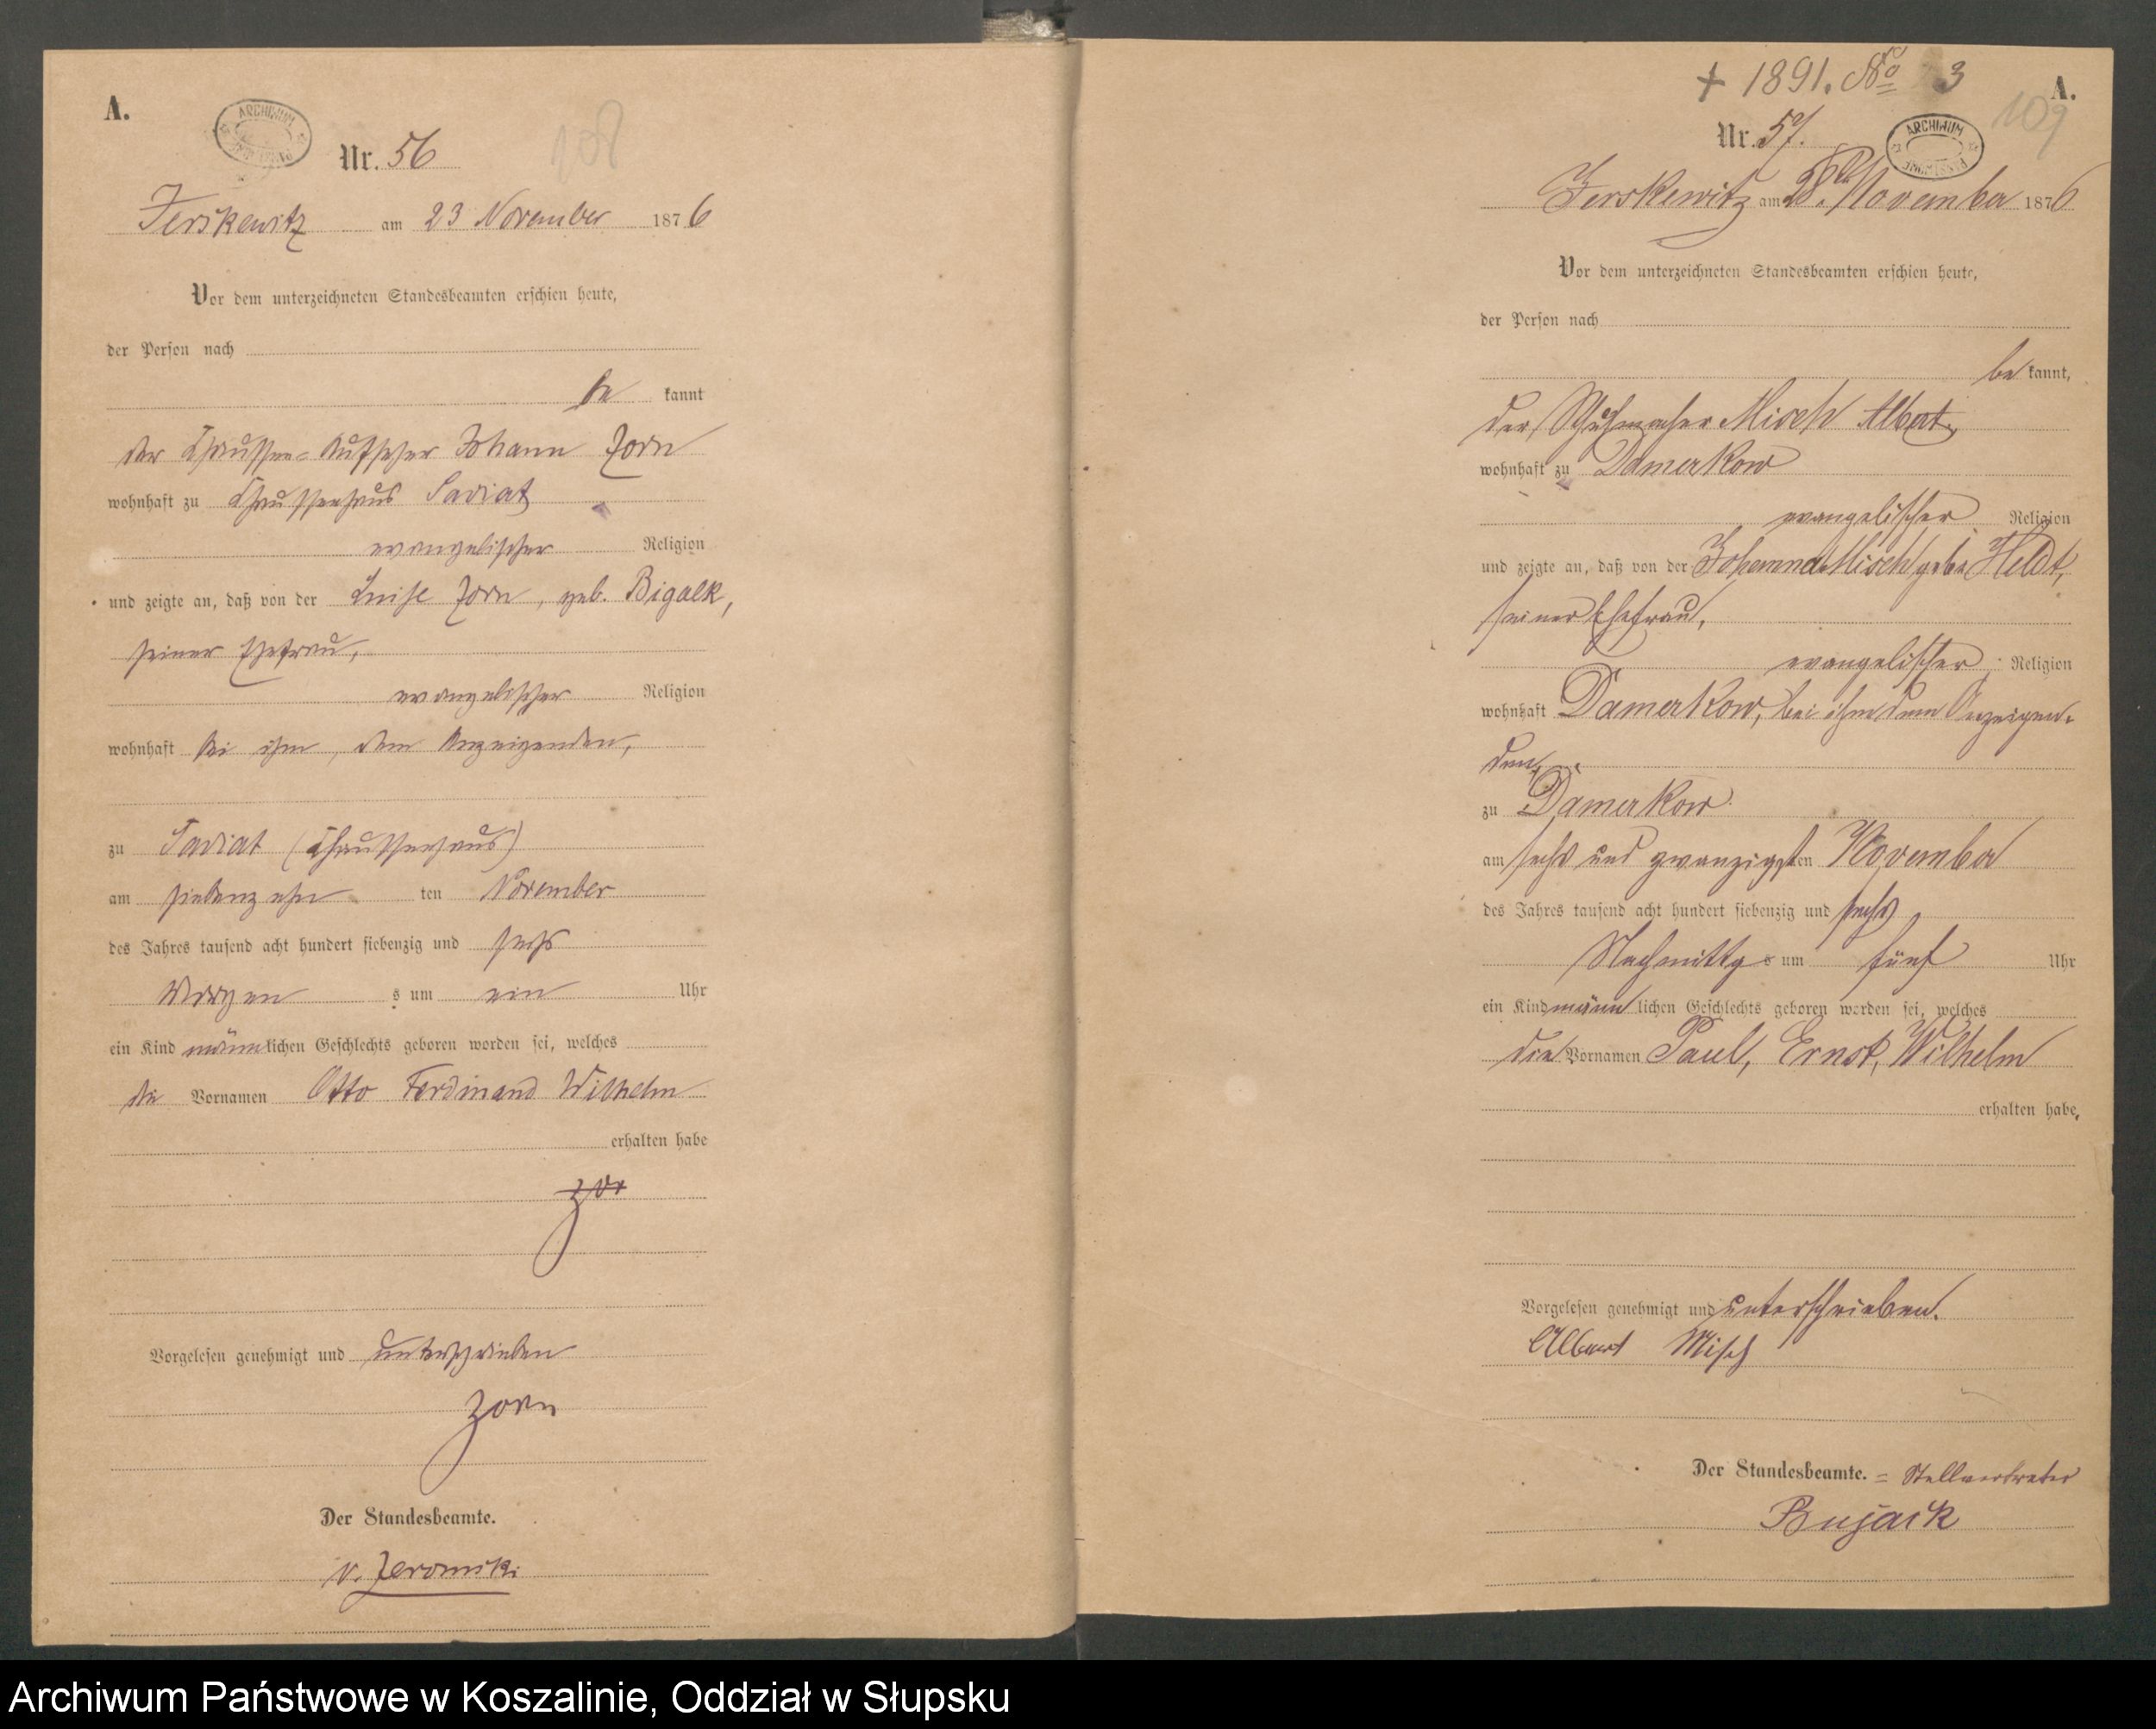 A.
ARCHIWUM
108
Nr. 56
Jerskewitz am 23 November 1876
Vor dem unterzeichneten Standesbeamten erschien heute,
der Person nach
be kannt
der Chaussee-Aufseher Johann Zorn
wohnhaft zu Chausseehaus Saviat
evangelischer Religion
und zeigte an, daß von der Luise Zorn, geb. Bigalk,
seiner Ehefrau,
evangelischer Religion
wohnhaft bei ihm, dem Anzeigenden,
zu Saviat (Chausseehaus)
am siebenzehn ten November
des Jahres tausend acht hundert siebenzig und sechs
Morgen s um ein Uhr
ein Kind männlichen Geschlechts geboren worden sei, welches
die Vornamen Otto Ferdinand Wilhelm
erhalten habe
Zor
Vorgelesen genehmigt und unterschrieben
Zorn
Der Standesbeamte.
v. Zeromski
+ 1891. No 3
A.
109
Nr. 57.
ARCHIWUM
Jerskewitz am 28ten November 1876
Vor dem unterzeichneten Standesbeamten erschien heute,
der Person nach
be kannt,
der Schuhmacher Misch Albert,
wohnhaft zu Damerkow
evangelischer Religion
und zeigte an, daß von der Johanna Misch geb. Heldt,
seiner Ehefrau,
evangelischer Religion
wohnhaft Damerkow, bei ihm dem Anzeigen-
den,
zu Damerkow
am sechs und zwanzigsten November
des Jahres tausend acht hundert siebenzig und sechs
Nachmittags um fünf Uhr
ein Kind männlichen Geschlechts geboren worden sei, welches
die Vornamen Paul, Ernst, Wilhelm
erhalten habe,
Vorgelesen genehmigt und unterschrieben.
Albert Misch
Der Standesbeamte. = Stellvertreter
Bujack
Archiwum Państwowe w Koszalinie, Oddział w Słupsku